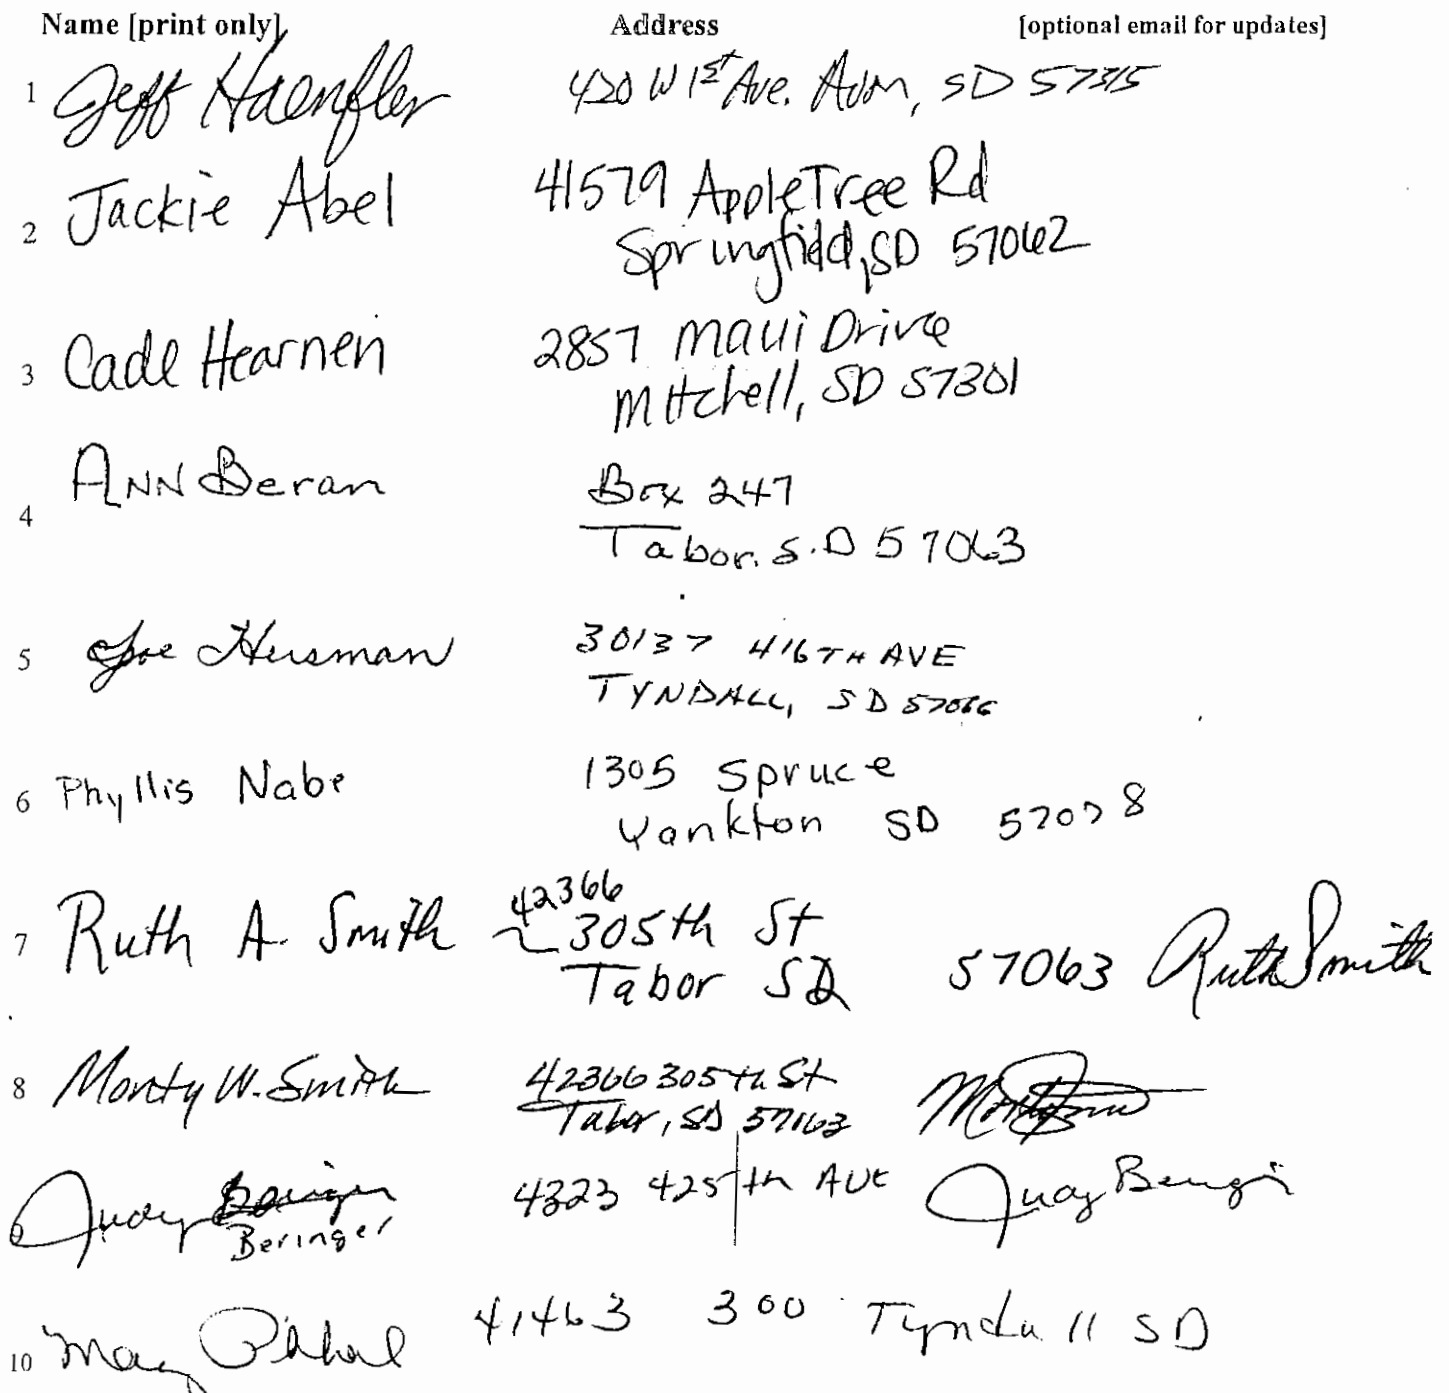 Name [print only] Address [optional email for updates]
1 Jeff Haenfler 420 W 1st Ave. Avon, SD 57315
2 Jackie Abel 41579 AppleTree Rd
Springfield, SD 57062
3 Cade Hearnen 2857 Maui Drive
Mitchell, SD 57301
4 ANN Beran Box 247
Tabor. S.D 57063
5 Joe Husman 30137 416TH AVE
TYNDALL, SD 57066
6 Phyllis Nabe 1305 Spruce
Yankton SD 57078
7 Ruth A. Smith 42366
305th St
Tabor SD 57063 Ruth Smith
8 Monty W. Smith 42366 305th St
Tabor, SD 57163
9 Judy Beringer 4323 425th AVE Judy
10 41463 300 Tyndall SD